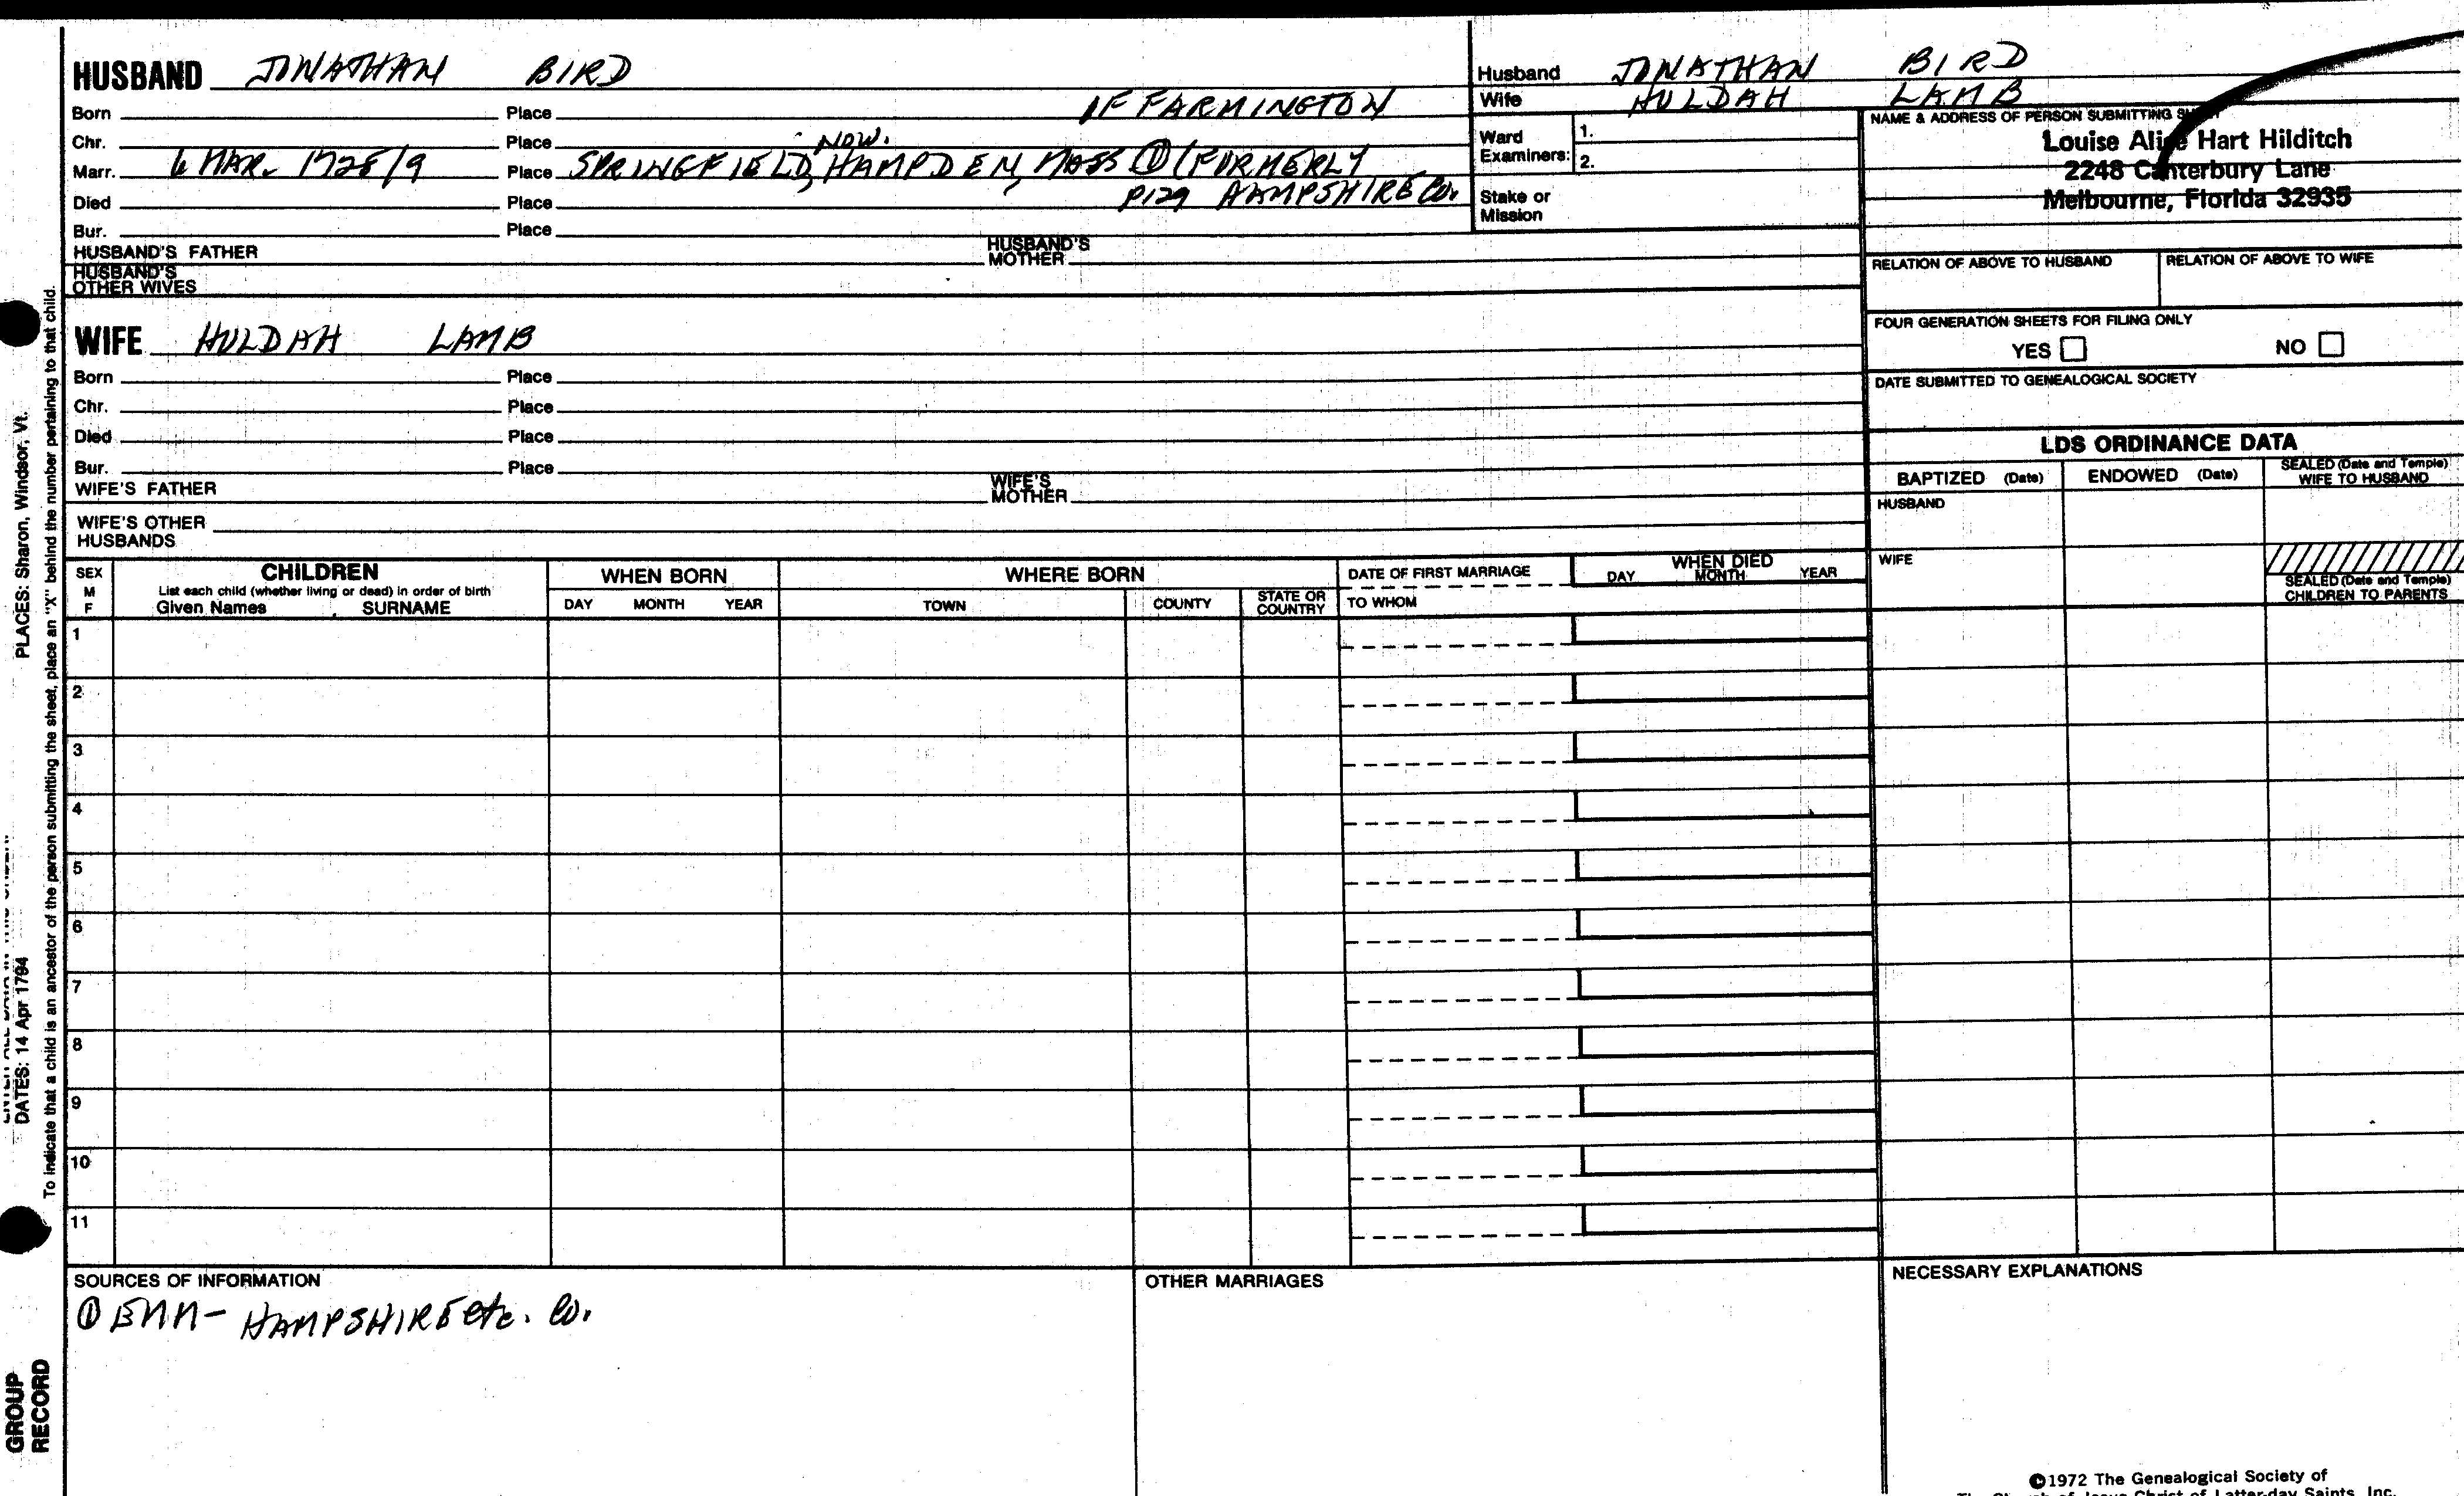 HUSBAND JONATHAN BIRD
Born Place OF FARMINGTON
Chr. Place NOW.
Marr. 6 MAR. 1728/9 Place SPRINGFIELD, HAMPDEN, MASS ① (FORMERLY
Died Place P129 HAMPSHIRE Co.
Bur. Place
HUSBAND'S FATHER HUSBAND'S MOTHER
HUSBAND'S OTHER WIVES
WIFE HULDAH LAMB
Born Place
Chr. Place
Died Place
Bur. Place
WIFE'S FATHER WIFE'S MOTHER
WIFE'S OTHER HUSBANDS
Husband JONATHAN BIRD
Wife HULDAH LAMB
Ward Examiners: 1.
2.
Stake or Mission
NAME & ADDRESS OF PERSON SUBMITTING
Louise Alice Hart Hilditch
2248 Canterbury Lane
Melbourne, Florida 32935
RELATION OF ABOVE TO HUSBAND RELATION OF ABOVE TO WIFE
FOUR GENERATION SHEETS FOR FILING ONLY
YES NO
DATE SUBMITTED TO GENEALOGICAL SOCIETY
LDS ORDINANCE DATA
BAPTIZED (Date) ENDOWED (Date) SEALED (Date and Temple) WIFE TO HUSBAND
HUSBAND
WIFE
SEALED (Date and Temple) CHILDREN TO PARENTS
SEX M F
CHILDREN
List each child (whether living or dead) in order of birth
Given Names SURNAME
WHEN BORN
DAY MONTH YEAR
WHERE BORN
TOWN COUNTY STATE OR COUNTRY
DATE OF FIRST MARRIAGE
TO WHOM
WHEN DIED
DAY MONTH YEAR
1
2
3
4
5
6
7
8
9
10
11
SOURCES OF INFORMATION
① BMM- HAMPSHIRE etc. Co.
OTHER MARRIAGES
NECESSARY EXPLANATIONS
©1972 The Genealogical Society of
The Church of Jesus Christ of Latter-day Saints, Inc.
PLACES: Sharon, Windsor, Vt.
DATES: 14 Apr 1794
To indicate that a child is an ancestor of the person submitting the sheet, place an "X" behind the number pertaining to that child.
GROUP
RECORD